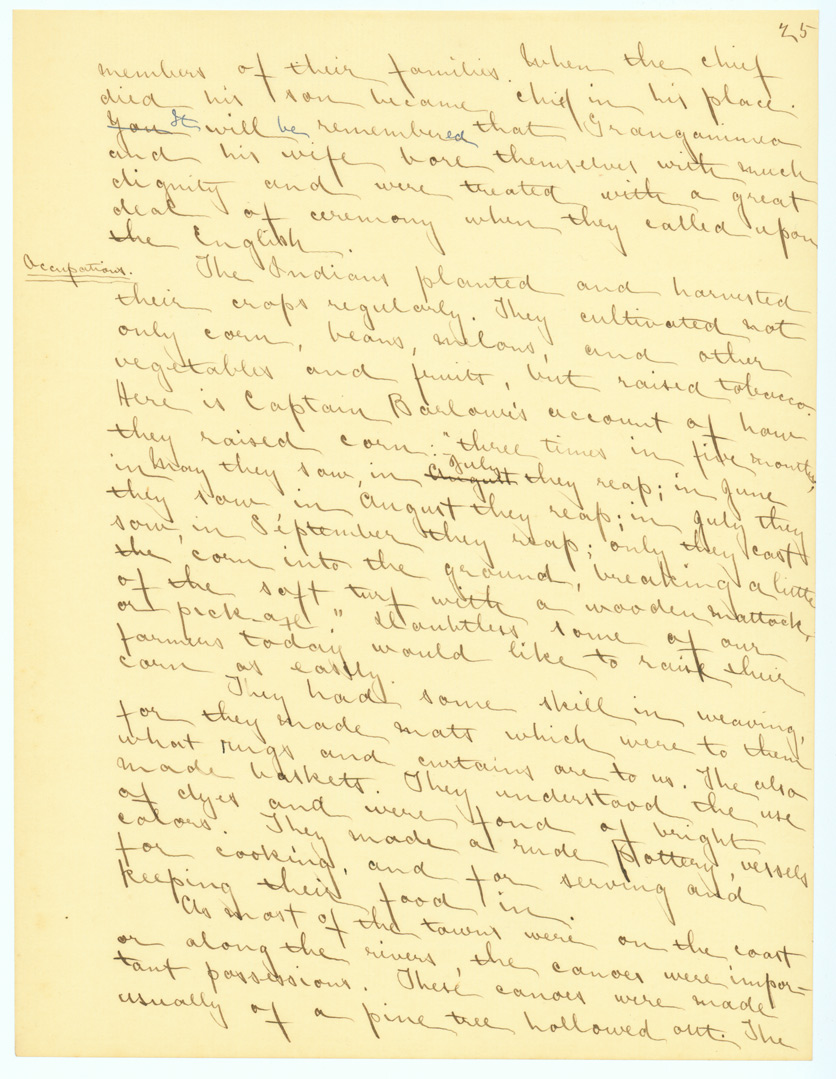 25
members of their families. When the chief
died his son became chief in his place.
You It will be remembered that Granganimeo
and his wife bore themselves with much
dignity and were treated with a great
deal of ceremony when they called upon
the English.
Occupations.
The Indians planted and harvested
their crops regularly. They cultivated not
only corn, beans, melons, and other
vegetables and fruits, but raised tobacco.
Here is Captain Barlowe's account of how
they raised corn: "three times in five months;
in May they sow, in August July they reap; in June
they sow, in August they reap; in July they
sow, in September they reap; only they cast
the corn into the ground, breaking a little
of the soft turf with a wooden mattock,
or pick-axe" Doubtless some of our
farmers today would like to raise their
corn as easily.
They had some skill in weaving,
for they made mats which were to them
what rugs and curtains are to us. The also
made baskets. They understood the use
of dyes and were fond of bright
colors. They made a rude pottery, vessels
for cooking, and for serving and
keeping their food in.
As most of the towns were on the coast
or along the rivers, the canoes were impor-
tant possessions. These canoes were made
usually of a pine tree hollowed out. The